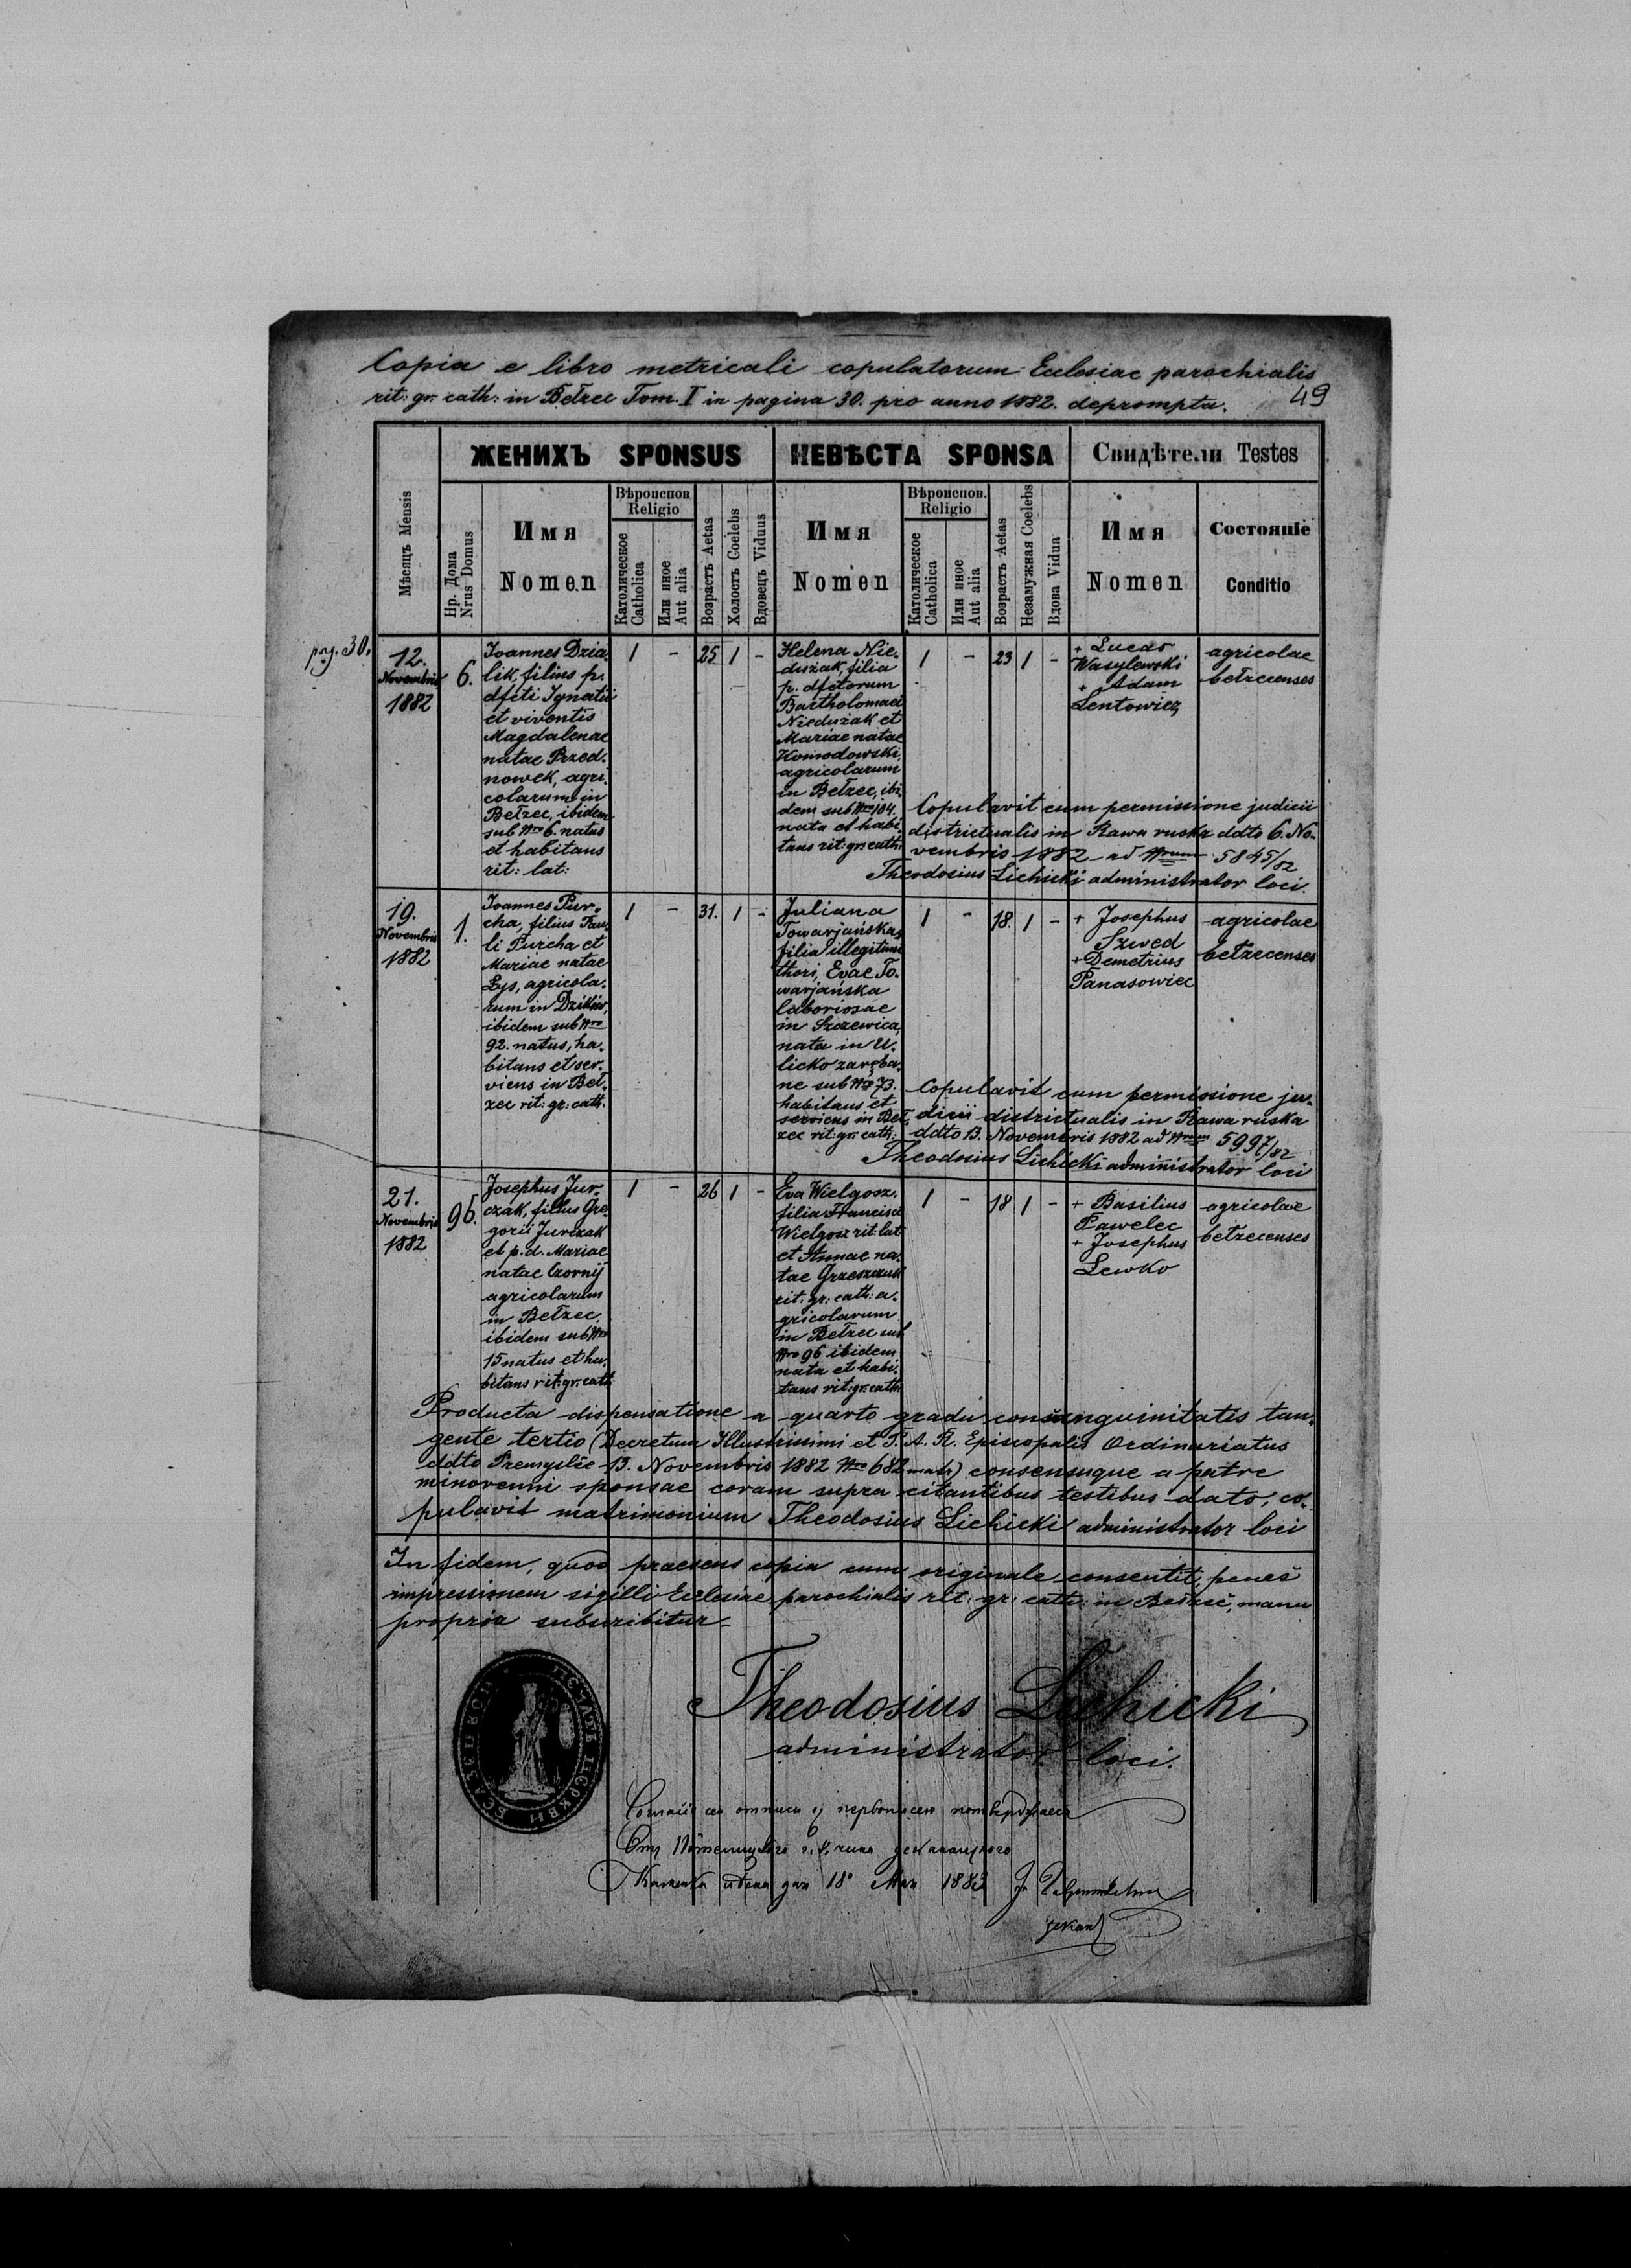 Copia e libro metricali copulatorum Ecclesiae parochialis
rit: gr: cath: in Bełzec Tom. I in pagina 30. pro anno 1882. deprompta.
49
ЖЕНИХЪ SPONSUS
НЕВѢСТА SPONSA
Свидѣтели Testes
Мѣсяцъ Mensis
Нр. Дома
Nrus Domus
Имя
Nomen
Вѣроиспов.
Religio
Католическое
Catholica
Или иное
Aut alia
Возрастъ Aetas
Холостъ Coelebs
Вдовецъ Viduus
Имя
Nomen
Вѣроиспов.
Religio
Католическое
Catholica
Или иное
Aut alia
Возрастъ Aetas
Незамужная Coelebs
Вдова Vidua
Имя
Nomen
Состояніе
Conditio
pag. 30.
12.
Novembris
1882
6.
Joannes Dzia-
lik, filius p.
dfcti Ignatii
et viventis
Magdalenae
natae Przed-
nowek, agri-
colarum in
Bełzec, ibidem
sub Nro 6. natus
et habitans
rit: lat:
1 - 25 1 -
Helena Nie-
dużak, filia
p. dfctorum
Bartholomaei
Niedużak et
Mariae natae
Komodowski,
agricolarum
in Bełzec, ibi-
dem sub Nro 184.
nata et habi-
tans rit: gr: cath:
1 - 23 1 -
+ Lucas
Wasylewski
+ Adam
Lentowicz
agricolae
bełzecenses
Copulavit cum permissione judicii
districtualis in Rawa ruska ddto 6. No-
vembris 1882 ad Nrum 5845/82
Theodosius Lichicki administrator loci.
19.
Novembris
1882
1.
Joannes Pur-
cha, filius Pau-
li Purcha et
Mariae natae
Lys, agricola-
rum in Dzików,
ibidem sub Nro
92. natus, ha-
bitans et ser-
viens in Beł-
zec rit: gr: cath.
1 - 31. 1 -
Juliana
Towarjańska,
filia illegitimi
thori, Evae To-
warjańska
laboriosae
in Szczewica,
nata in U-
licko zaręba-
ne sub Nro 73.
habitans et
serviens in Beł-
zec rit: gr: cath:
1 - 18. 1 -
+ Josephus
Szwed
+ Demetrius
Panasowiec
agricolae
bełzecenses
Copulavit cum permissione ju-
dicii districtualis in Rawa ruska
ddto 13. Novembris 1882 ad Nrum 5997/82
Theodosius Lichicki administrator loci
21.
Novembris
1882
96.
Josephus Jur-
czak, filius Gre-
gorii Jurczak
et p. d. Mariae
natae Czornij
agricolarum
in Bełzec,
ibidem sub Nro
15 natus et ha-
bitans rit: gr: cath
1 - 26 1 -
Eva Wielgosz,
filia Francisci
Wielgosz rit: lat
et Annae na-
tae Grzeszczuk
rit: gr: cath: a-
gricolarum
in Bełzec sub
Nro 96 ibidem
nata et habi-
tans rit: gr: cath:
1 - 18 1 -
+ Basilius
Pawelec
+ Josephus
Lewko
agricolae
bełzecenses
Producta dispensatione a quarto gradu consanguinitatis tan-
gente tertio (Decretum Illustrissimi et P. A. R. Episcopalis Ordinariatus
ddto Premysliae 13. Novembris 1882 Nro 682 matr) consensuque a patre
minorenni sponsae coram supra citantibus testibus dato, co-
pulavit matrimonium Theodosius Lichicki administrator loci
In fidem, quod praesens copia cum originale consentit, penes
impressionem sigilli Ecclesiae parochialis rit: gr: cath: in Bełzec, manu
propria subscribitur.
Theodosius Lichicki
administrator loci.
18 1883
декан